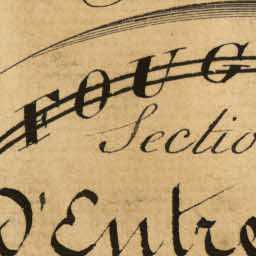 FOUG
Sectio
D'Entre